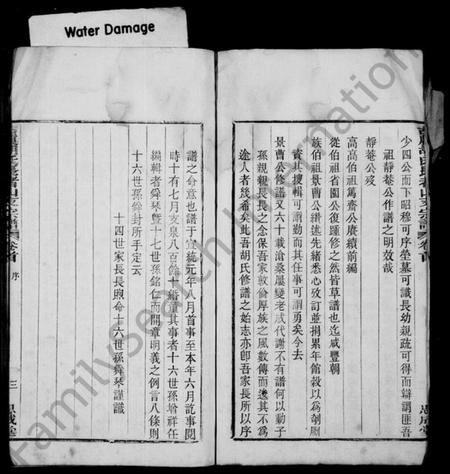 Water Damage
少四公而下昭穆可序塋墓可識長幼親疏可得而辯謂匪吾
祖靜菴公作譜之明效哉
靜菴公歿
高高伯祖篤齋公賡續前編
從伯祖省園公復踵修之然皆草譜也迄咸豐朝
族伯祖景曹公纘述先緒悉心攷訂並捐累年館穀以為剞劂
資其搜輯可謂勤而其任事可謂勇矣今去
景曹公修譜又六十載滄桑屢變老成代謝不有譜何以勖子
孫親親長長之念保吾家敦倫厚族之風數傳而遞其不為
途人者幾希矣此吾胡氏修譜之始志亦卽吾家長所以序
譜之命意也譜于宣統元年八月首事至本年六月訖事閱
時十有七月支泉八百餘十緡董其事者十六世孫翰祥任
編輯者舜琴暨十七世孫銘仁而開章明義之例言八條則
十六世孫錦封所手定云
十四世家長殿命十六世孫舜琴謹識
卷首
序
三
思成堂
卷首
思成堂
Familysearch International